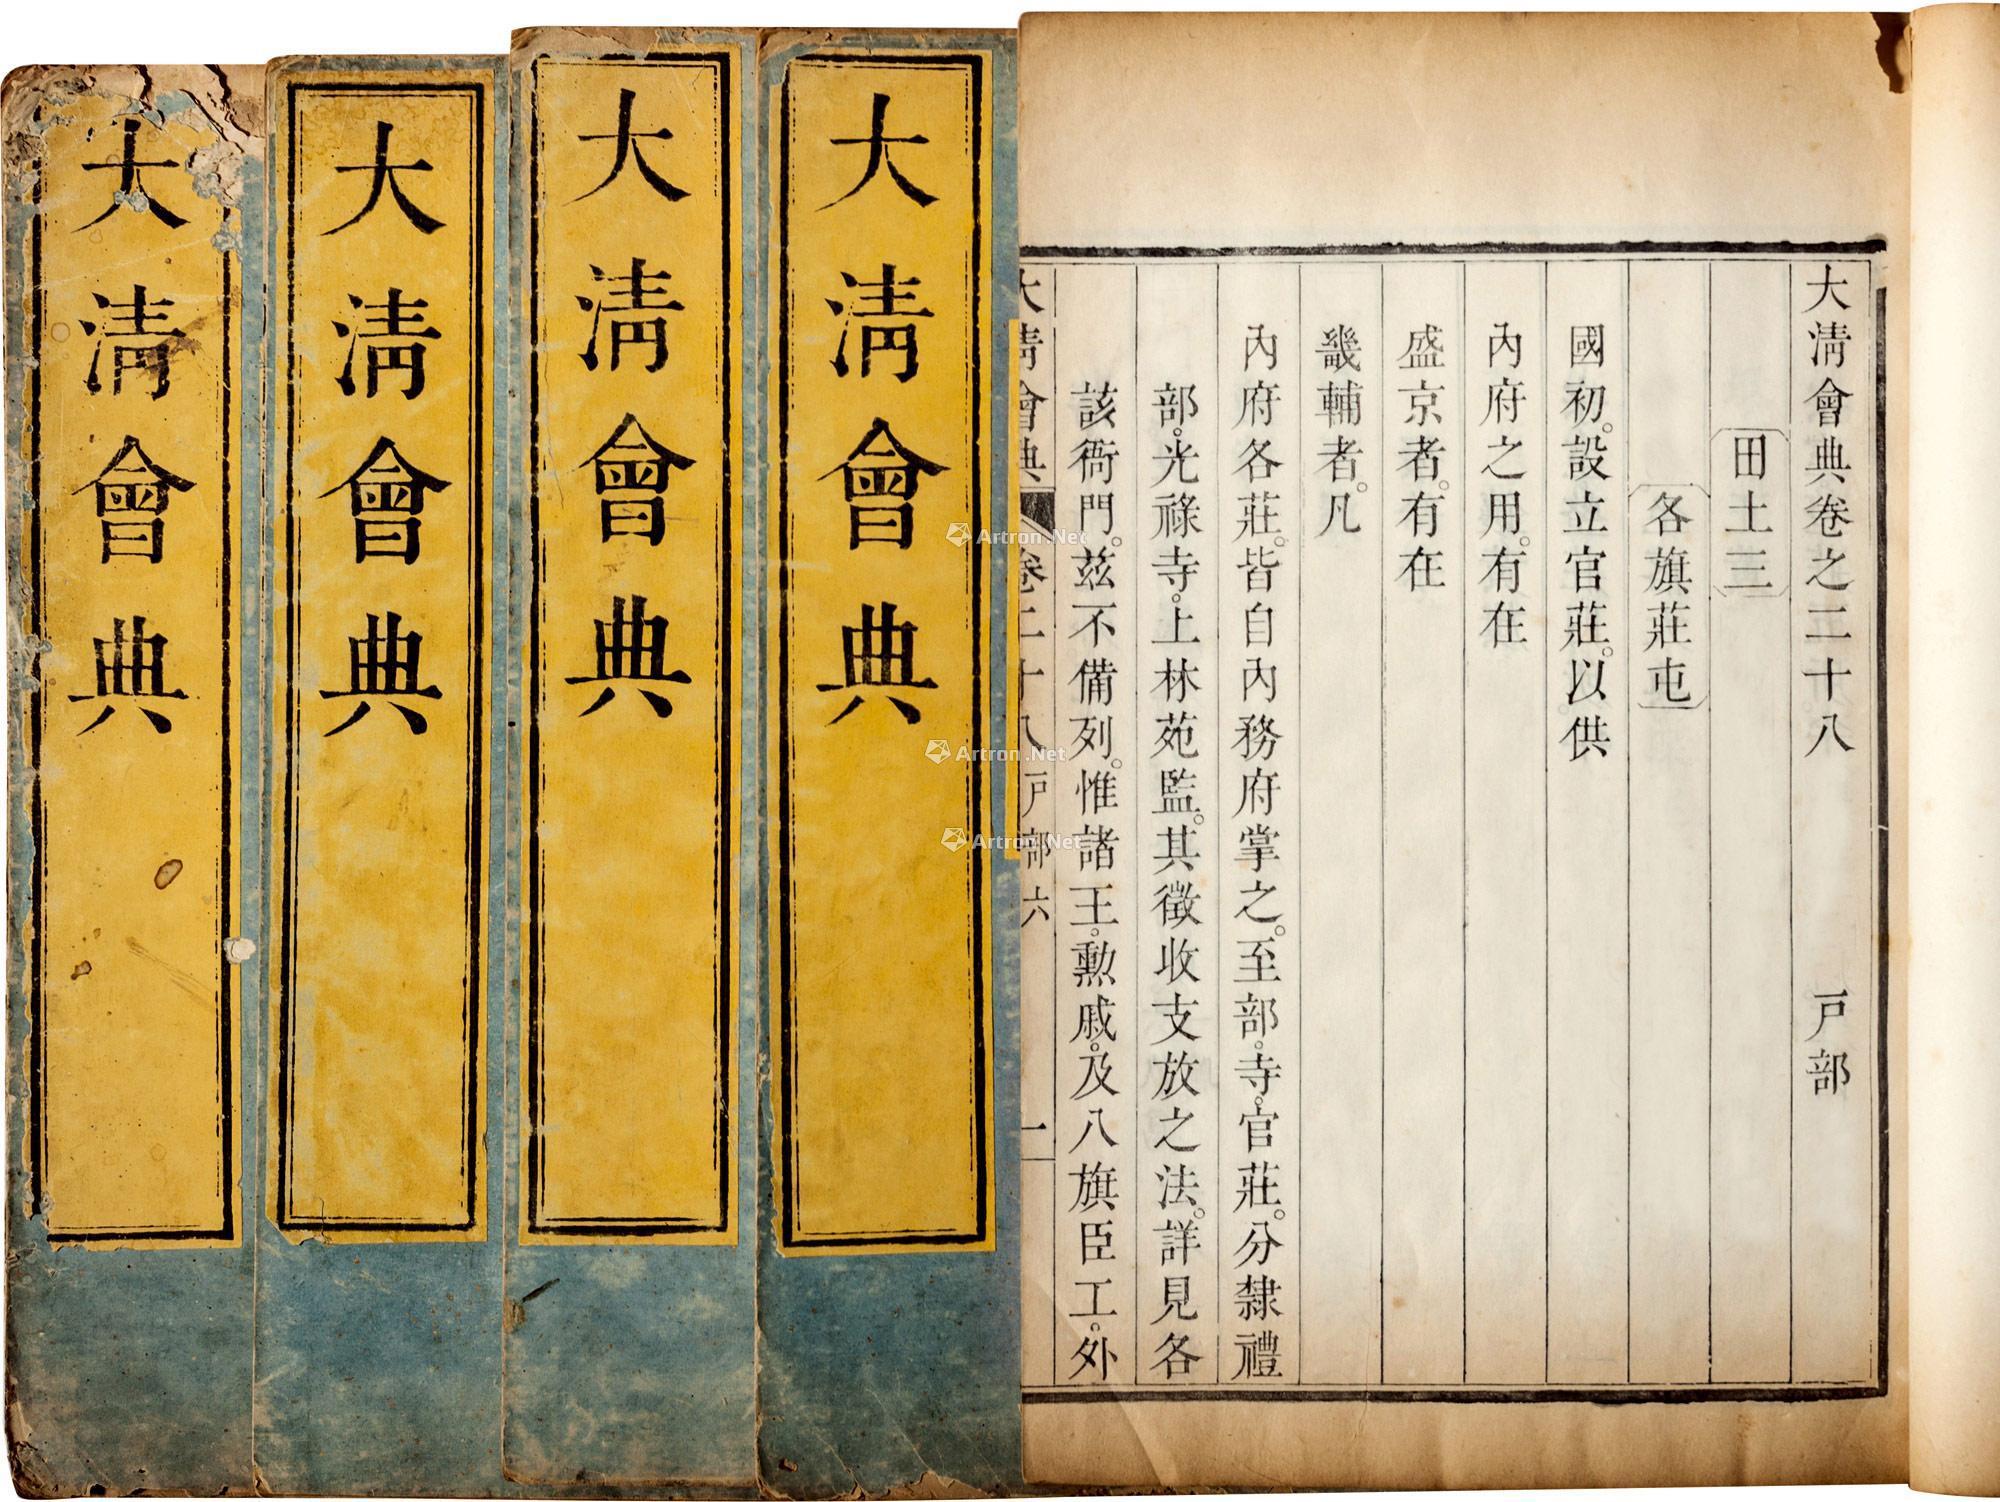 大清會典
大清會典
大清會典
大清會典
大淸會典卷之二十八　戸部
田土三
各旗莊屯
國初。設立官莊。以供
內府之用。有在
盛京者。有在
畿輔者。凡
內府各莊。皆自內務府掌之。至部。寺。官莊。分隸禮
部。光祿寺。上林苑監。其徵收支放之法。詳見各
該衙門。茲不備列。惟諸王。勲戚。及八旗臣工。外
大淸會典　卷二十八　戸部六　一
Artron.Net
Artron.Net
Artron.Net